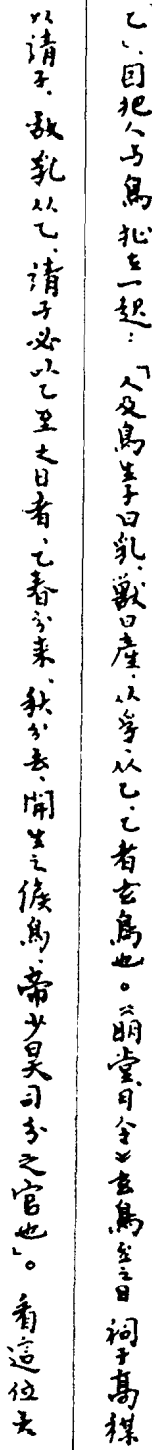 乙」,因把人与鳥扯在一起:「人及鳥生子曰乳,獸曰產,从孚,从乙,乙者玄鳥也。《明堂月令》玄鳥至之日祠于高禖
以請子,故乳从乙,請子必以乙至之日者,乙春分来,秋分去,開生之候鳥,帝少昊司分之官也」。看這位去